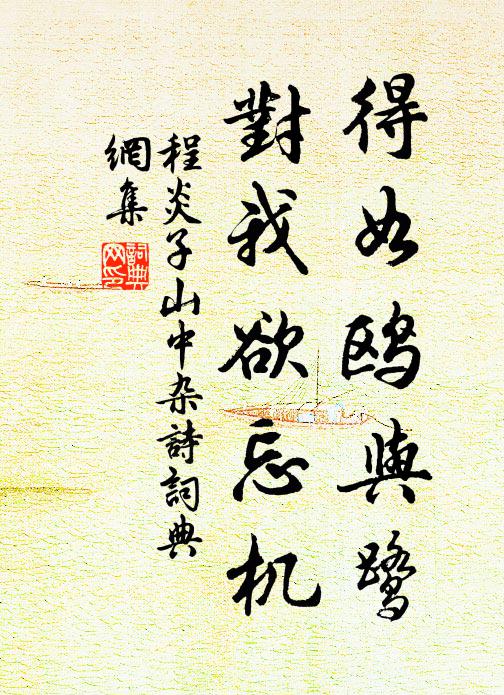 得如鸥與鹭
對我欲忘机
程炎子山中杂詩詞典
網集
詞典
网印